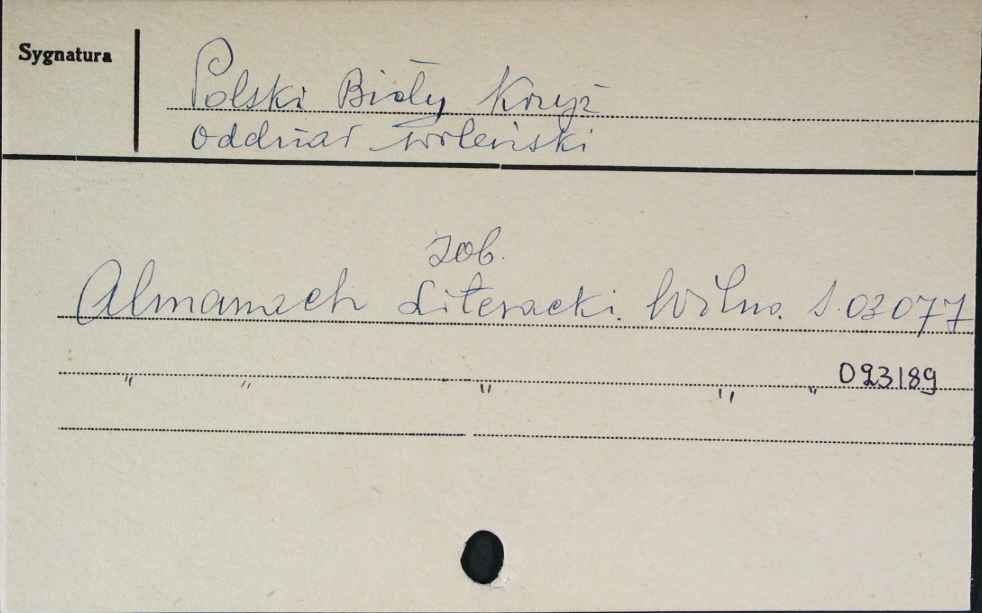 Sygnatura
Polski Biały Krzyż
Oddział Wileński
zob.
Almanach Literacki. Wilno. S. 03077
" " " " " 023189